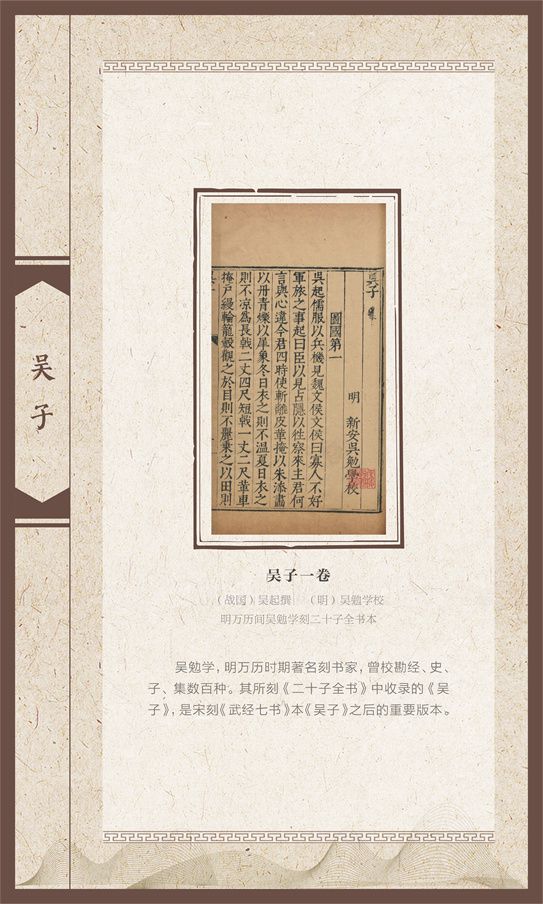 吴子
吳子
明 新安吳勉學校
圖國第一
吳起儒服以兵機見魏文侯文侯曰寡人不好
軍旅之事起曰臣以見占隱以徃察來主君何
言與心違今君四時使斬離皮革掩以朱漆畫
以丹青爍以犀象冬日衣之則不溫夏日衣之
則不凉爲長戟二丈四尺短戟一丈二尺革車
掩戸縵輪籠轂觀之於目則不麗乗之以田則
吴子一卷
（战国）吴起撰 （明）吴勉学校
明万历间吴勉学刻二十子全书本
吴勉学，明万历时期著名刻书家，曾校勘经、史、
子、集数百种。其所刻《二十子全书》中收录的《吴
子》，是宋刻《武经七书》本《吴子》之后的重要版本。